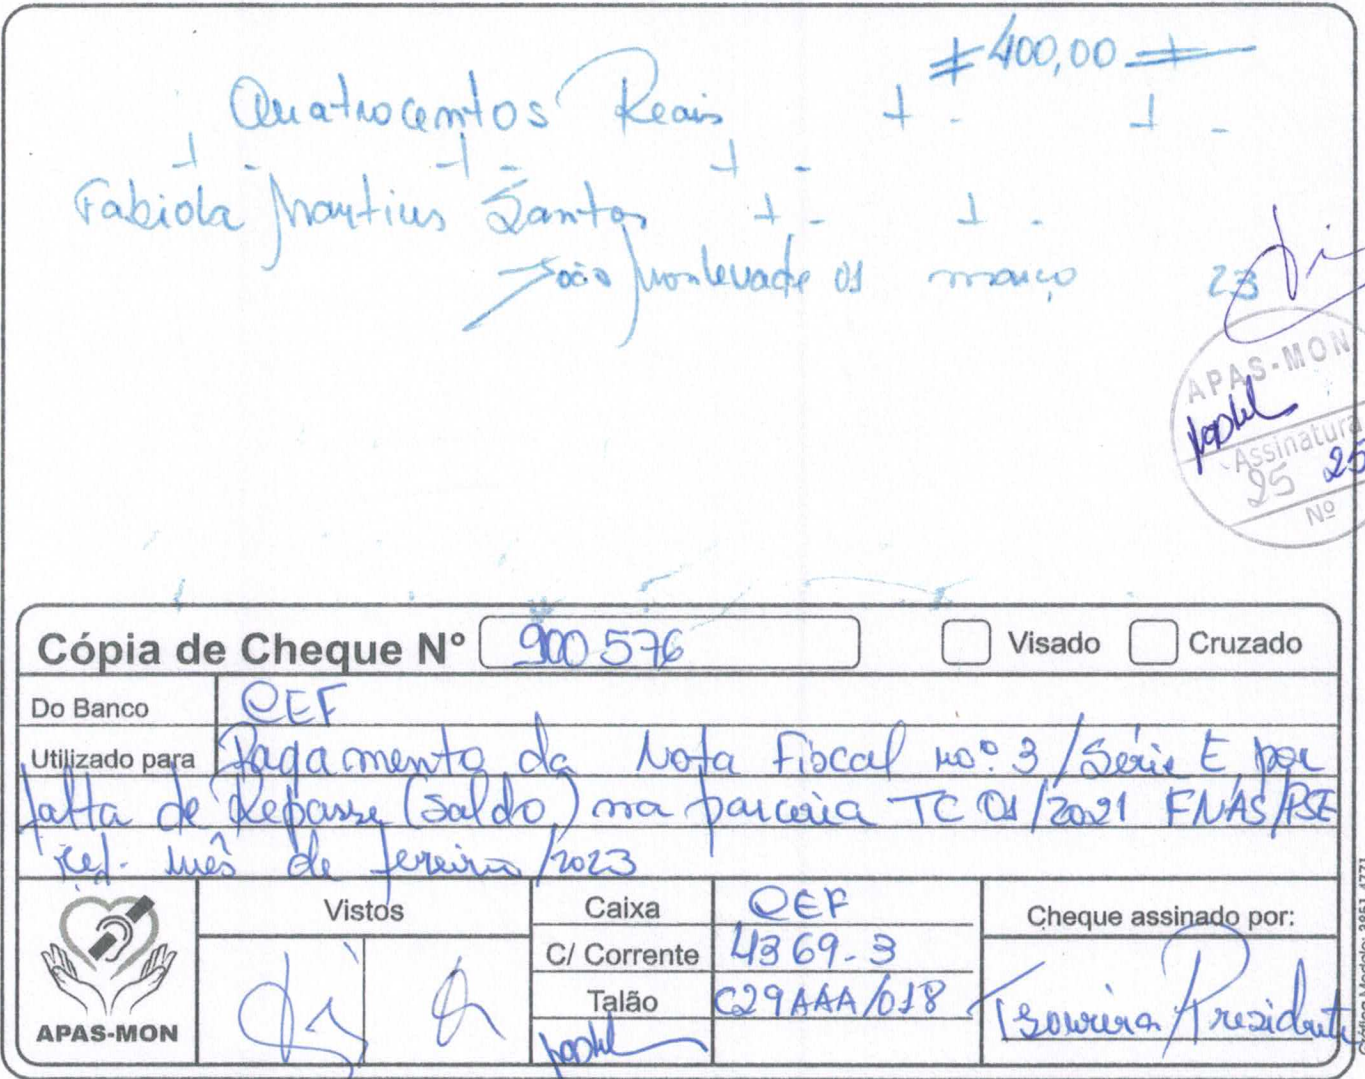 # 400,00 #
Quatrocentos Reais
Fabiola Martins Santos
João Monlevade 01 março 23
APAS-MON
Assinatura
25 25
Nº
Cópia de Cheque Nº 900576 Visado Cruzado
Do Banco CEF
Utilizado para Pagamento da Nota Fiscal nº. 3 / Série E por
falta de Repasse (saldo) na parceria TC 01/2021 FNAS/PSE
ref. mês de fevereiro/2023
Vistos
Caixa CEF
C/ Corrente 4369-3
Talão C29AAA/018
Cheque assinado por:
Tesoureira Presidente
APAS-MON